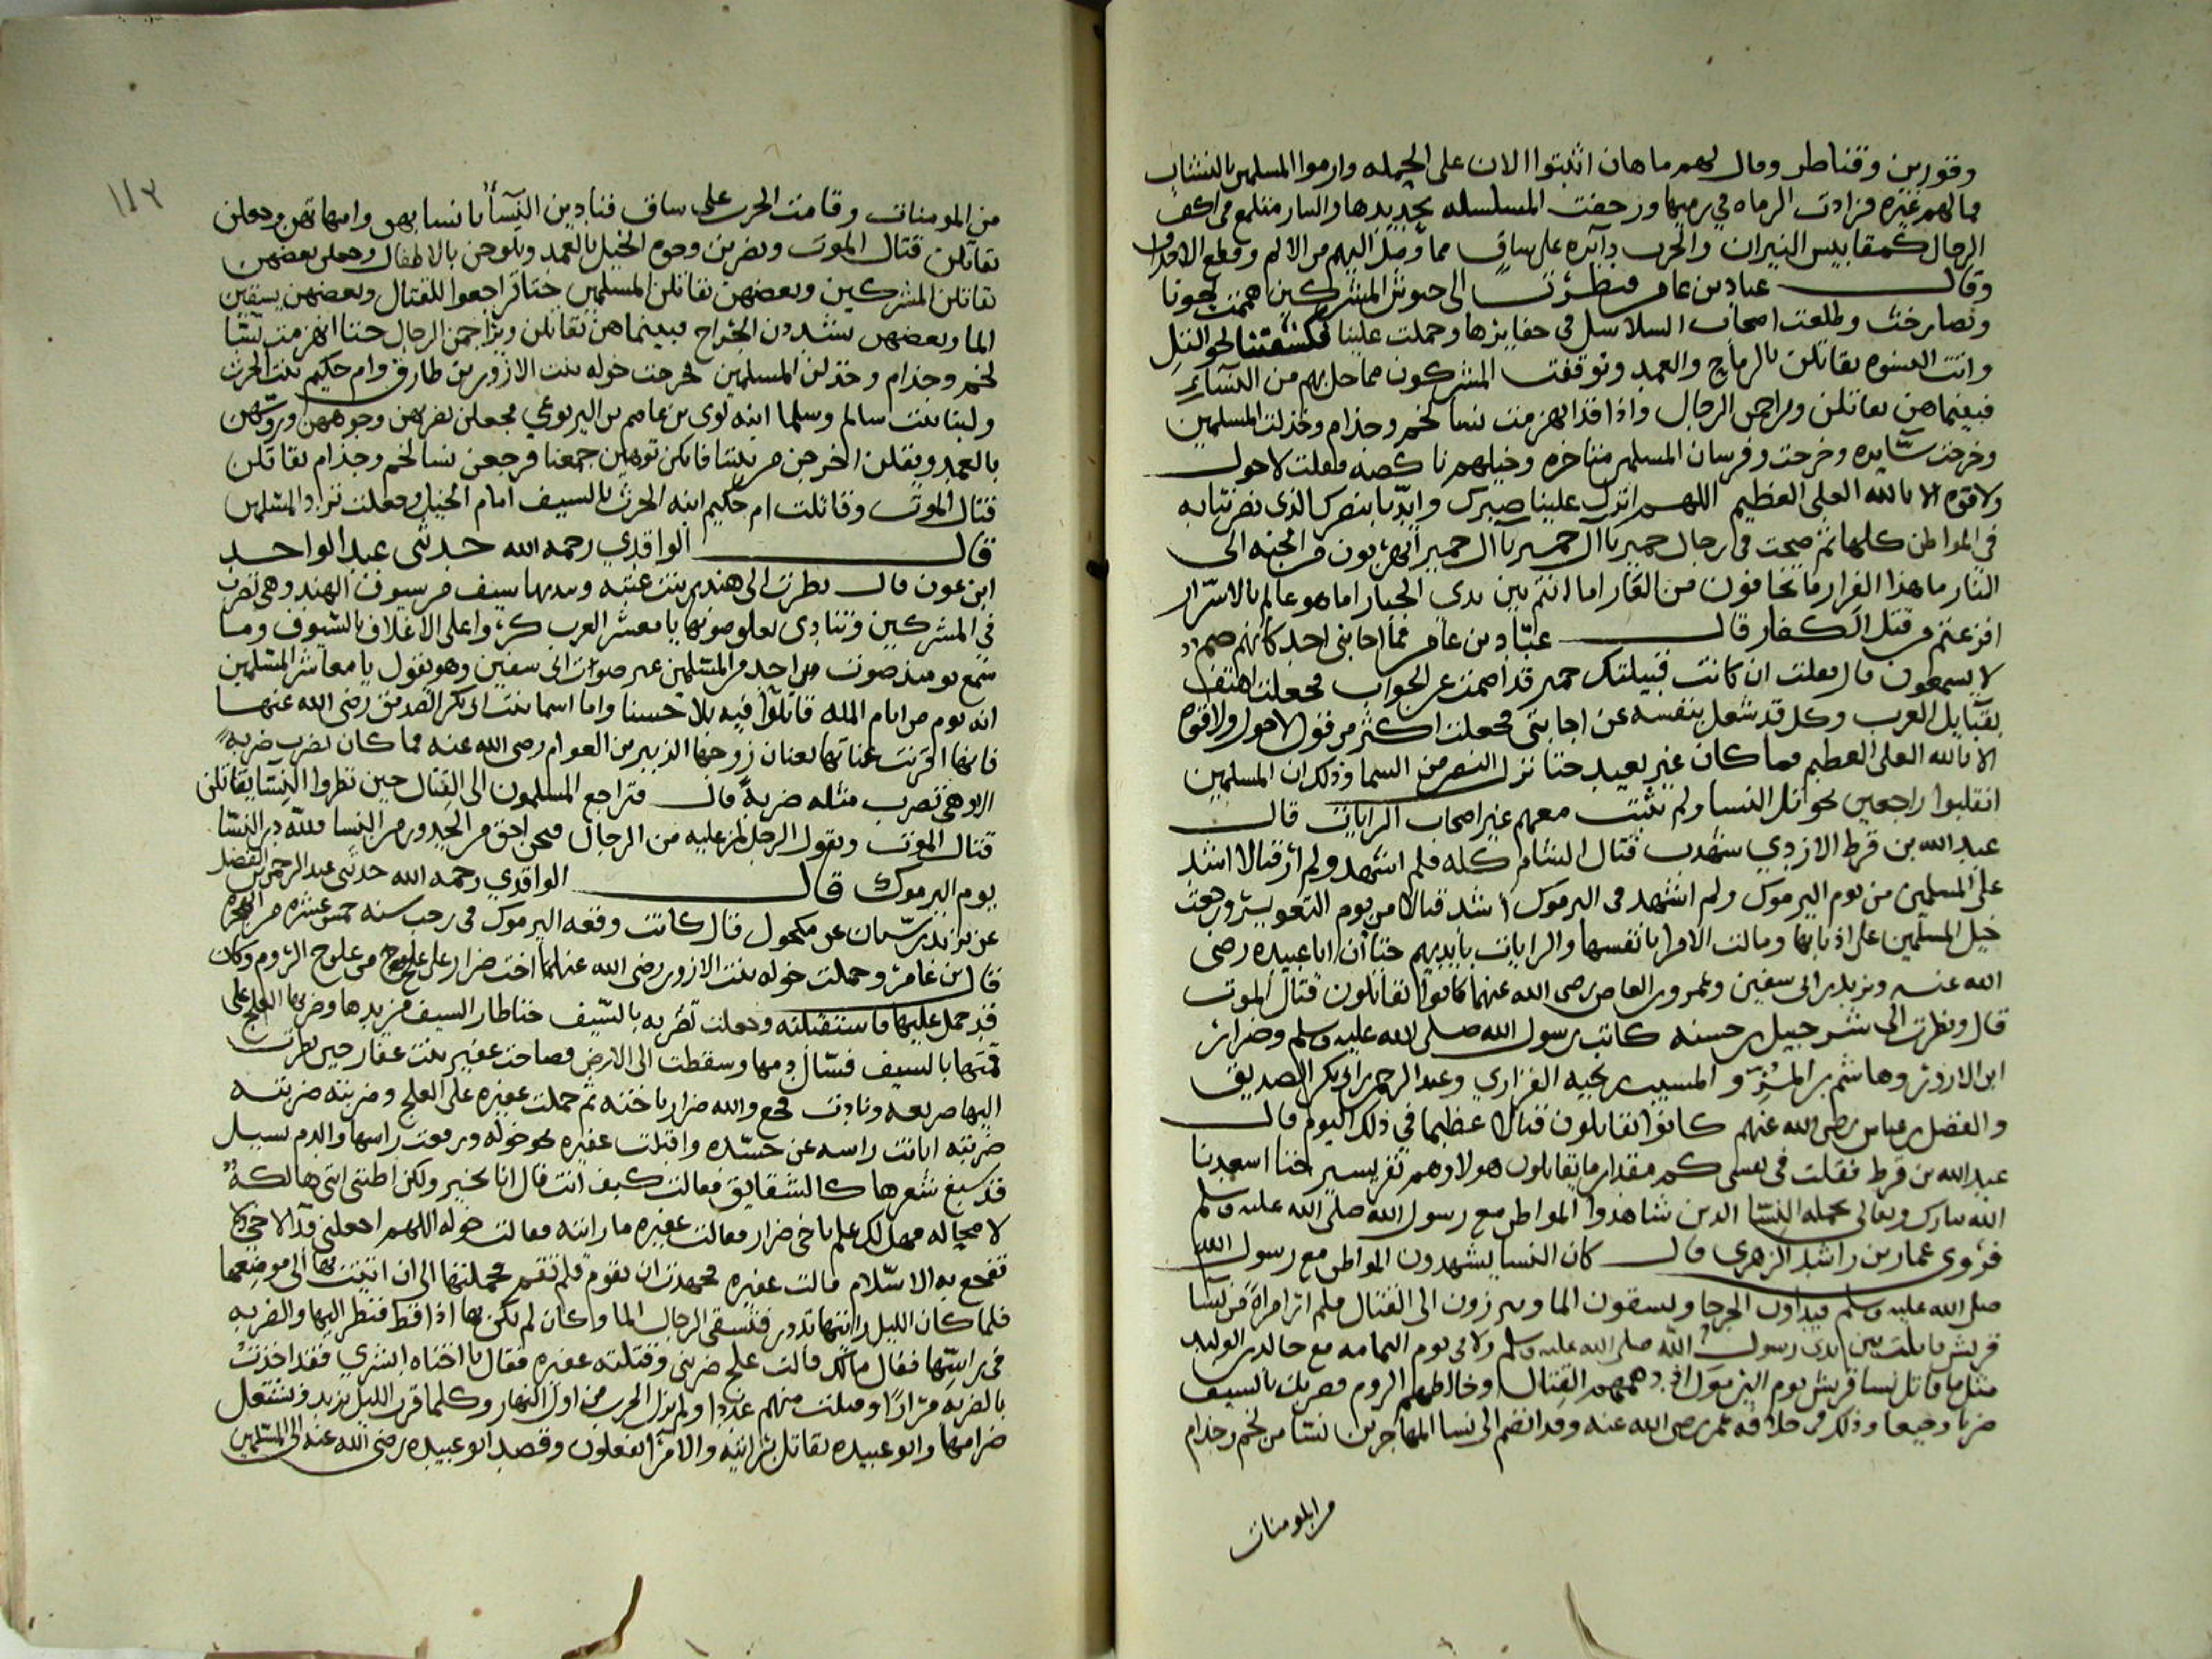 وقورين وقناطر وقال لهم ماهان اثبتوا الان على الحمله وارموا المسلمين بالنشاب
فمالهم غيره فزادت الرماه في رميها وزحفت المسلسله بحديدها والنار منلمع في اكف
الرجال كمقابيس النيران والحرب دآئره على ساق مما وصل اليهم من الالم وقطع الاقدام
وقال عباد بن عامر فنظرت الى جيوش المشركين
وتصارخت وطلعت اصحاب السلاسل في حفايزها وحملت علينا فكشفتنا نحو التل
واتت النسوه يقاتلن بالرماح والعمد وتوقفت المشركون مما حل بهم من النسآء
فبينما هن يقاتلن ويراجعن الرجال واذا قد انهزمت نسا لخم وجذام وخذلت المسلمين
وخرجت سآيره وخرجت وفرسان المسلمين متاخره وخيلهم ناكصه فقلت لا حول
ولا قوه الا بالله العلي العظيم اللهم انزل علينا صبرك وايدنا بنصرك الذي نصرتنا به
في المواطن كلها ثم صحت في رجال حمير يا آل حمير يا آل حمير اتهربون من الجنه الى
النار ما هذا الفرار ما تخافون من العار اما انتم بين يدي الجبار اما هو عالم بالاسرار
افزعتم من قتل الكفار قال عبّاد بن عامر فما اجابني احد كانهم صم
لا يسمعون قال فقلت ان كانت قبيلتك حمير قد اصمت عن الجواب فجعلت اهتف
بقبآيل العرب وكل قد شغل بنفسه عن اجابتي فجعلت اكثر من قول لا حول ولا قوه
الا بالله العلي العظيم فما كان غير بعيد حتا نزل النصر من السما وذلك ان المسلمين
انقلبوا راجعين نحو تل النسا ولم يثبت معهم غير اصحاب الرايات قال
عبد الله بن قرط الازدي شهدت قتال الشام كله فلم اشهد ولم ار قتالا اشد
على المسلمين من يوم اليرموك ولم اشهد في اليرموك اشد قتالا من يوم التعوير ورجعت
خيل المسلمين على اذنابها وقاتلت الامرا بانفسها والرايات بايديهم حتا ان ابا عبيده رضي
الله عنه ويزيد بن ابي سفين وعمرو بن العاص رضي الله عنهما كانوا يقاتلون قتال الموت
قال ونظرت الى شرحبيل بن حسنه كاتب رسول الله صلى الله عليه وسلم وضرار
ابن الازور وهاشم بن المرقال والمسيب بن نجيه الفزاري وعبد الرحمن بن ابي بكر الصديق
والفضل بن عباس رضي الله عنهم كانوا يقاتلون قتالا عظيما في ذلك اليوم قال
عبد الله بن قرط فقلت في نفسي كم مقدار ما يقاتلون هولاء وهم نفر يسير حتا اسعدنا
الله تبارك وتعالى بحمله النسا الذين شاهدوا المواطن مع رسول الله صلى الله عليه وسلم
فروى عمار بن راشد الزهري قال كان النسا يشهدون المواطن مع رسول الله
صلى الله عليه وسلم فيداون الجرحا ويسقون الما ويبرزون الى القتال فلم ار امراة من نسآ
قريش قاتلت بين يدي رسول الله صلى الله عليه وسلم ولا في يوم اليمامه مع خالد بن الوليد
مثل ما قاتل نسا قريش يوم اليرموك اذ دهمهم القتال وخالطهم الروم فضربت بالسيف
ضربا وجيعا وذلك في خلافه عمر رضي الله عنه وقد انضم الى نسا المهاجرين نسا من لخم وجذام
من المومنات
١١٣
من المومنات وقامت الحرب على ساق فنادين النسآء يا نسا بهن وامهاتهن وجعلن
يقاتلن قتال الموت ويضربن وجوه الخيل بالعمد ويلوحن بالاطفال وجعل بعضهن
يقاتلن المشركين وبعضهن يقاتلن المسلمين حتا تراجعوا للقتال وبعضهن يسقين
الما وبعضهن يشددن الجراح فبينما هن يقاتلن ويراجعن الرجال حتا انهزمت نسا
لخم وجذام وخذلن المسلمين فخرجت خوله بنت الازور بن طارق وام حكيم بنت الحرث
ولبنا بنت سالم وسلما ابنه لوى بن عاصم بن اليربوعي فجعلن يضربهن وجوههن ورؤسهن
بالعمد ويقلن اخرجن من بيننا فانكن توهين جمعنا فرجعن نسا لخم وجذام يقاتلن
قتال الموت وقاتلت ام حكيم ابنه الحرث بالسيف امام الخيل وجعلت تزاود المسلمين
قال الواقدي رحمه الله حدثني عبد الواحد
ابن عون قال نظرت الى هند بنت عتبه وبيدها سيف من سيوف الهند وهي تضرب
في المشركين وتنادي بعلو صوتها يا معشر العرب كروا على الاغلاف بالسيوف وما
سمع يوميذ صوت من احد من المسلمين غير صوات ابي سفين وهو يقول يا معاشر المسلمين
انه يوم من ايام الله قابلوا فيه بلا حسنا واما اسما بنت ابي بكر الصديق رضي الله عنها
فانها اقرنت عنانها بعنان زوجها الزبير بن العوام رضي الله عنه فما كان يضرب ضربة
الا وهي تضرب مثله ضربة قال فتراجع المسلمون الى القتال حين نظروا النسا يقاتلن
قتال الموت ويقول الرجل لمن يليه من الرجال فنحن احق من الخدور من النسا فلله در النسا
يوم اليرموك قال الواقدي رحمه الله حدثني عبد الرحمن بن الفضل
عن يزيد بن سنان عن مكحول قال كانت وقعه اليرموك في رجب سنه خمس عشره من الهجره
قال ابن عامر وحملت خوله بنت الازور رضي الله عنهما اخت ضرار على علج من علوج الروم وكان
قد حمل عليها فاستقبلته وجعلت تضربه بالسيف حتا طار السيف من يدها وضربها العلج على
قمتها بالسيف فسال دمها وسقطت الى الارض فصاحت عفيره بنت عفار حين نظرت
اليها صريعه ونادت فجع والله ضرار باخته ثم حملت عفيره على العلج وضربته ضربتـه
ضربته ابانت راسه عن جسده واقبلت عفيره نحو خوله ورفعت راسها والدم يسيل
قد صبغ شعرها كالشقايق فقالت كيف انت قال انا بخير ولكن اظنني انني هالكة
لا محاله فهل لك علم باخي ضرار فقالت عفيره ما رايته فقالت خوله اللهم اجعلني فدآ لاخي ولا
تفجع به الاسلام قالت عفيره فجهدت ان تقوم فلم تقم فحملتها الى ان اتيت بها الى موضعها
فلما كان الليل رايتها تدور فتسقي الرجال الما وكان لم يكن بها اذا قط فنظر اليها والضربه
في راسها فقال مالك قالت علج ضربني وقتلته عفيره فقال يا اختاه ابشري فقد اخذت
بالضربه مرارا وقتلت منهم عددا ولم يزل الحرب من اول النهار وكلما قرب الليل يزيد وتشتعل
ضرامها وابو عبيده يقاتل برايته والامرآ يفعلون وقصد ابو عبيده رضي الله عنه الى المسلمين